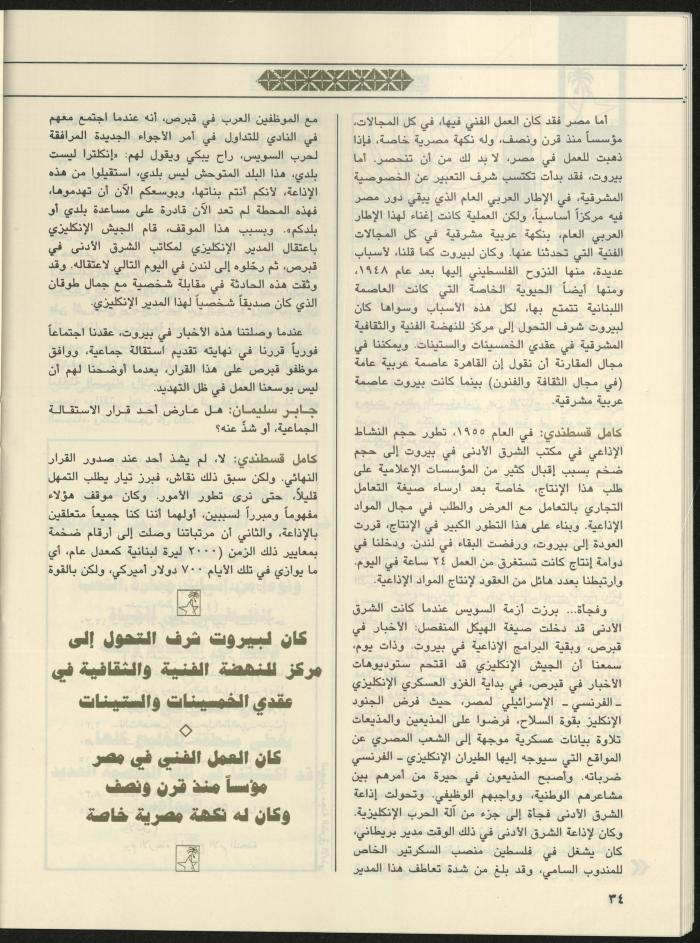 أما مصر فقد كان العمل الفني فيها، في كل المجالات،
مؤسساً منذ قرن ونصف، وله نكهة مصرية خاصة، فإذا
ذهبت للعمل في مصر، لا بد لك من أن تنحصر. أما
بيروت، فقد بدأت تكتسب شرف التعبير عن الخصوصية
المشرقية، في الإطار العربي العام الذي يبقي دور مصر
فيه مركزاً أساسياً، ولكن العملية كانت إغناء لهذا الإطار
العربي العام، بنكهة عربية مشرقية في كل المجالات
الفنية التي تحدثنا عنها. وكان لبيروت كما قلنا، لأسباب
عديدة، منها النزوح الفلسطيني إليها بعد عام ١٩٤٨،
ومنها أيضاً الحيوية الخاصة التي كانت العاصمة
اللبنانية تتمتع بها، لكل هذه الأسباب وسواها كان
لبيروت شرف التحول إلى مركز للنهضة الفنية والثقافية
المشرقية في عقدي الخمسينات والستينات. ويمكننا في
مجال المقارنة أن نقول إن القاهرة عاصمة عربية عامة
(في مجال الثقافة والفنون) بينما كانت بيروت عاصمة
عربية مشرقية.
كامل قسطندي: في العام ١٩٥٥، تطور حجم النشاط
الإذاعي في مكتب الشرق الأدنى في بيروت إلى حجم
ضخم بسبب إقبال كثير من المؤسسات الإعلامية على
طلب هذا الإنتاج، خاصة بعد ارساء صيغة التعامل
التجاري بالتعامل مع العرض والطلب في مجال المواد
الإذاعية. وبناء على هذا التطور الكبير في الإنتاج، قررت
العودة إلى بيروت، ورفضت البقاء في لندن. ودخلنا في
دوامة إنتاج كانت تستغرق من العمل ٢٤ ساعة في اليوم.
وارتبطنا بعدد هائل من العقود لإنتاج المواد الإذاعية.
وفجأة... برزت أزمة السويس عندما كانت الشرق
الأدنى قد دخلت صيغة الهيكل المنفصل: الأخبار في
قبرص، وبقية البرامج الإذاعية في بيروت. وذات يوم،
سمعنا أن الجيش الإنكليزي قد اقتحم ستوديوهات
الأخبار في قبرص، في بداية الغزو العسكري الإنكليزي
ـ الفرنسي ـ الإسرائيلي لمصر، حيث فرض الجنود
الإنكليز بقوة السلاح، فرضوا على المذيعين والمذيعات
تلاوة بيانات عسكرية موجهة إلى الشعب المصري عن
المواقع التي سيوجه إليها الطيران الإنكليزي ـ الفرنسي
ضرباته. وأصبح المذيعون في حيرة من أمرهم بين
مشاعرهم الوطنية، وواجبهم الوظيفي. وتحولت إذاعة
الشرق الأدنى فجأة إلى جزء من آلة الحرب الإنكليزية.
وكان لإذاعة الشرق الأدنى في ذلك الوقت مدير بريطاني،
كان يشغل في فلسطين منصب السكرتير الخاص
للمندوب السامي، وقد بلغ من شدة تعاطف هذا المدير
مع الموظفين العرب في قبرص، أنه عندما اجتمع معهم
في النادي للتداول في أمر الأجواء الجديدة المرافقة
لحرب السويس، راح يبكي ويقول لهم: «إنكلترا ليست
بلدي، هذا البلد المتوحش ليس بلدي، استقيلوا من هذه
الإذاعة، لأنكم أنتم بناتها، وبوسعكم الآن أن تهدموها،
فهذه المحطة لم تعد الآن قادرة على مساعدة بلدي أو
بلدكم». وبسبب هذا الموقف، قام الجيش الإنكليزي
باعتقال المدير الإنكليزي لمكاتب الشرق الأدنى في
قبرص، ثم رحّلوه إلى لندن في اليوم التالي لاعتقاله. وقد
وثقت هذه الحادثة في مقابلة شخصية مع جمال طوقان
الذي كان صديقاً شخصياً لهذا المدير الإنكليزي.
عندما وصلتنا هذه الأخبار في بيروت، عقدنا اجتماعاً
فورياً قررنا في نهايته تقديم استقالة جماعية، ووافق
موظفو قبرص على هذا القرار، بعدما أوضحنا لهم أن
ليس بوسعنا العمل في ظل التهديد.
جابر سليمان: هل عارض أحد قرار الاستقالة
الجماعية، أو شذّ عنه؟
كامل قسطندي: لا، لم يشذ أحد عند صدور القرار
النهائي. ولكن سبق ذلك نقاش، فبرز تيار يطلب التمهل
قليلاً، حتى نرى تطور الأمور. وكان موقف هؤلاء
مفهوماً ومبرراً لسببين، أولهما أننا كنا جميعاً متعلقين
بالإذاعة، والثاني أن مرتباتنا وصلت إلى أرقام ضخمة
بمعايير ذلك الزمن (٢٠٠٠ ليرة لبنانية كمعدل عام، أي
ما يوازي في تلك الأيام ٧٠٠ دولار أميركي، ولكن بالقوة
كان لبيروت شرف التحول إلى
مركز للنهضة الفنية والثقافية في
عقدي الخمسينات والستينات
كان العمل الفني في مصر
مؤسساً منذ قرن ونصف
وكان له نكهة مصرية خاصة
٣٤